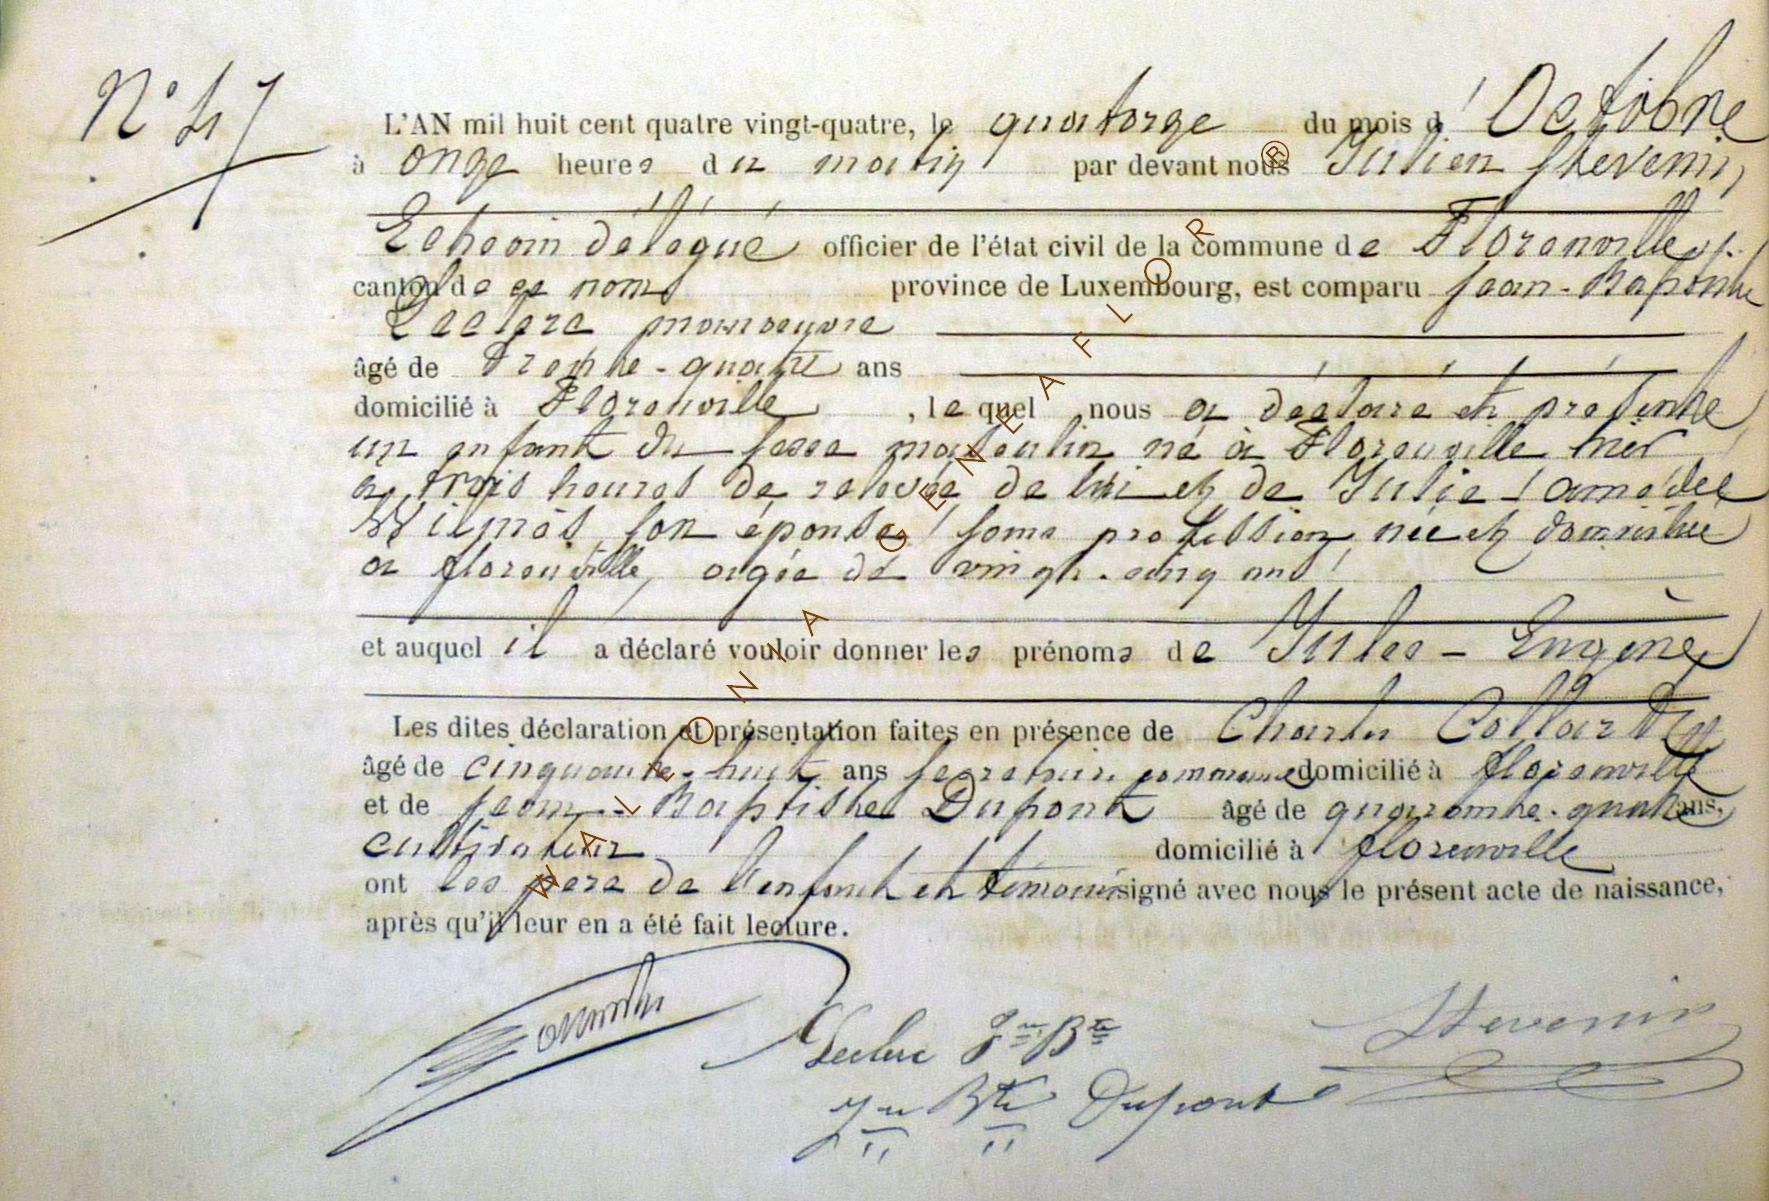 N° 47
L'AN mil huit cent quatre vingt-quatre, le quatorze du mois d'Octobre
à onze heures du matin par devant nous Julien Stevenin,
Echevin délégué officier de l'état civil de la commune de Florenville,
canton de ce nom province de Luxembourg, est comparu Jean-Baptiste
Leclerc manoeuvre
âgé de Trente-quatre ans
domicilié à Florenville, lequel nous a déclaré et présenté
un enfant du sexe masculin né à Florenville hier
à trois heures de relevée, de lui et de Julie Amédée
Wilmès, son épouse, sans profession, née et domiciliée
à florenville, agée de vingt-cinq ans,
et auquel il a déclaré vouloir donner les prénoms de Jules - Eugène,
Les dites déclaration et présentation faites en présence de Charles Collard
âgé de cinquante-huit ans secrétaire communal domicilié à florenville
et de Jean-Baptiste Dupont âgé de quarante-quatre ans,
cultivateur domicilié à florenville
ont les père de l'enfant et témoins signé avec nous le présent acte de naissance,
après qu'il leur en a été fait lecture.
Leclerc Jn Bte
Stevenin
Jn Bte Dupont
WALLONIA GENEAFLOR ®